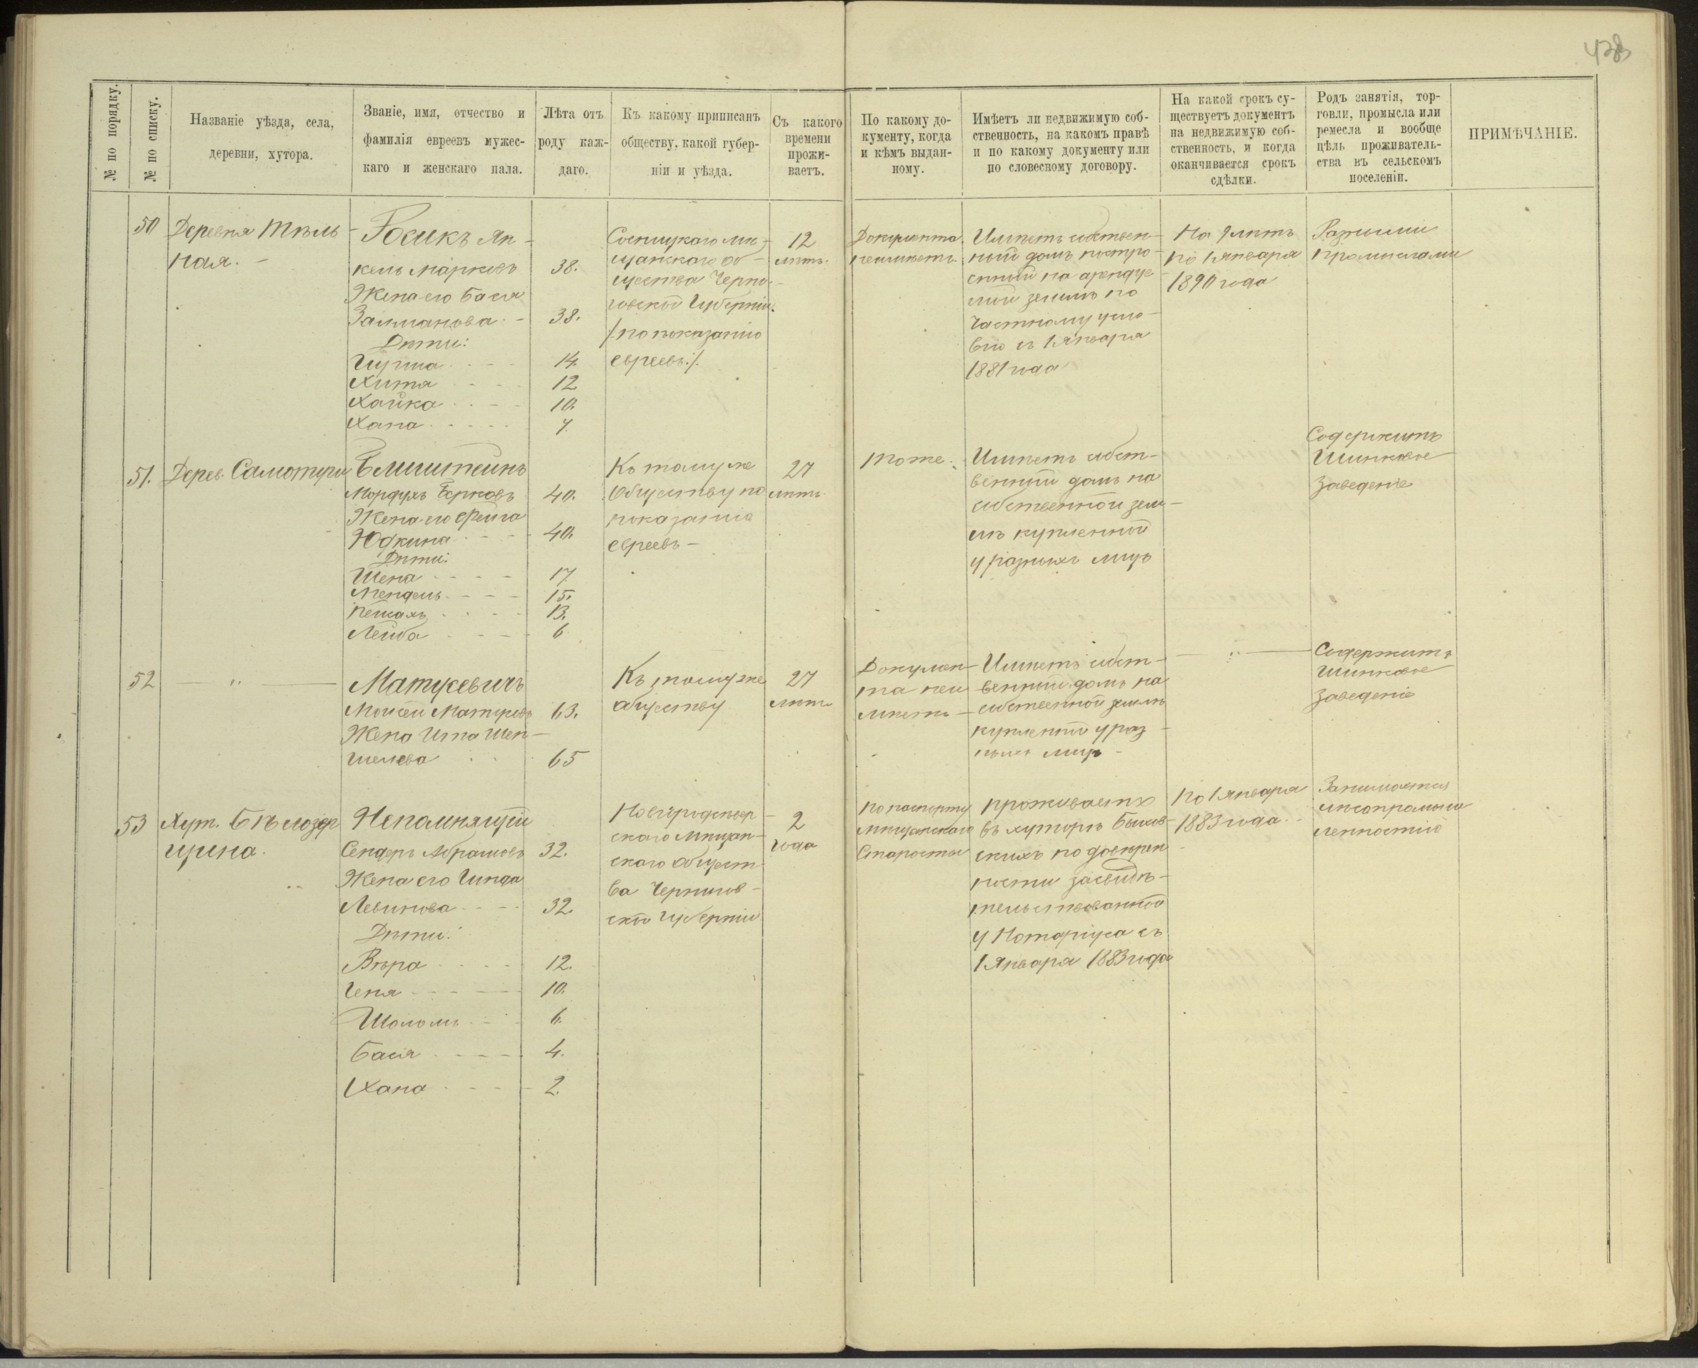 428
№ по порядку.
№ по списку.
Названіе уѣзда, села,
деревни, хутора.
Званіе, имя, отчество и
фамилія евреевъ мужес-
каго и женскаго пала.
Лѣта отъ
роду каж-
даго.
Къ какому приписанъ
обществу, какой губер-
ніи и уѣзда.
Съ какого
времени
прожи-
ваетъ.
По какому до-
кументу, когда
и кѣмъ выдан-
ному.
Имѣетъ ли недвижимую соб-
ственность, на какомъ правѣ
и по какому документу или
по словесному договору.
На какой срокъ су-
ществуетъ документъ
на недвижимую соб-
ственность, и когда
оканчивается срокъ
сдѣлки.
Родъ занятія, тор-
говли, промысла или
ремесла и вообще
цѣль проживатель-
ства въ сельскомъ
поселеніи.
ПРИМѢЧАНІЕ.
50
Деревня Тѣль-
ная.
Росикъ Ян-
кель Марковъ 38.
Жена его Бася
Залманова 38.
Дѣти:
14
Хитя 12
Хайка 10.
Хана 7.
Сосницкаго мѣ-
щанскаго об-
щества Черни-
говской Губерніи
/:по показанію
евреевъ:/.
12
лѣтъ.
Документа
неимѣетъ
Имѣетъ собствен-
ный домъ постро-
енный на арендуе-
мой землѣ по
частному усло-
вію съ 1 Января
1881 года
На 9 лѣтъ
по 1 Января
1890 года
Разными
промыслами
51.
Дерев. Самотуги
Бмиштейнъ
Мордухъ Берковъ 40.
Жена его Фейга
Юдкина 40.
Дѣти:
Шена 17
Мендель 15.
Пейсахъ 13.
Лейба 6
Къ тому же
обществу по
показанію
евреевъ
27
лѣтъ
тоже.
Имѣетъ собст-
венный домъ на
собственной зем-
лѣ купленной
у разныхъ лицъ
Содержитъ
Шинковое
Заведеніе
52
"
Матусевичъ
Мовсей Матусовъ 63.
Жена Ита Шен-
шелева 65
Къ тому же
обществу
27
лѣтъ
Докумен-
та неи-
мѣетъ
Имѣетъ собст-
венный домъ на
собственной землѣ
купленной у раз-
ныхъ лицъ
"
Содержитъ
Шинковое
Заведеніе
53
Хут. Бѣлозер-
щина.
Непомнящій
Сендеръ Абрамовъ 32.
Жена его Гинда
Левинова 32.
Дѣти:
Вѣра 12.
Геня 10.
Шоломъ 6.
Бася 4.
Хана 2.
Новгородсѣвер-
скаго Мѣщан-
скаго Общест-
ва Чернигов-
ской Губерніи
2
года
По паспорту
Мѣщанскаго
Старосты
Проживаетъ
въ хуторѣ
по довѣрен-
ности засвидѣ-
тельствованной
у Нотаріуса съ
1 Января 1883 года
По 1 Января
1883 года
Занимается
мѣсопромыш-
ленностію